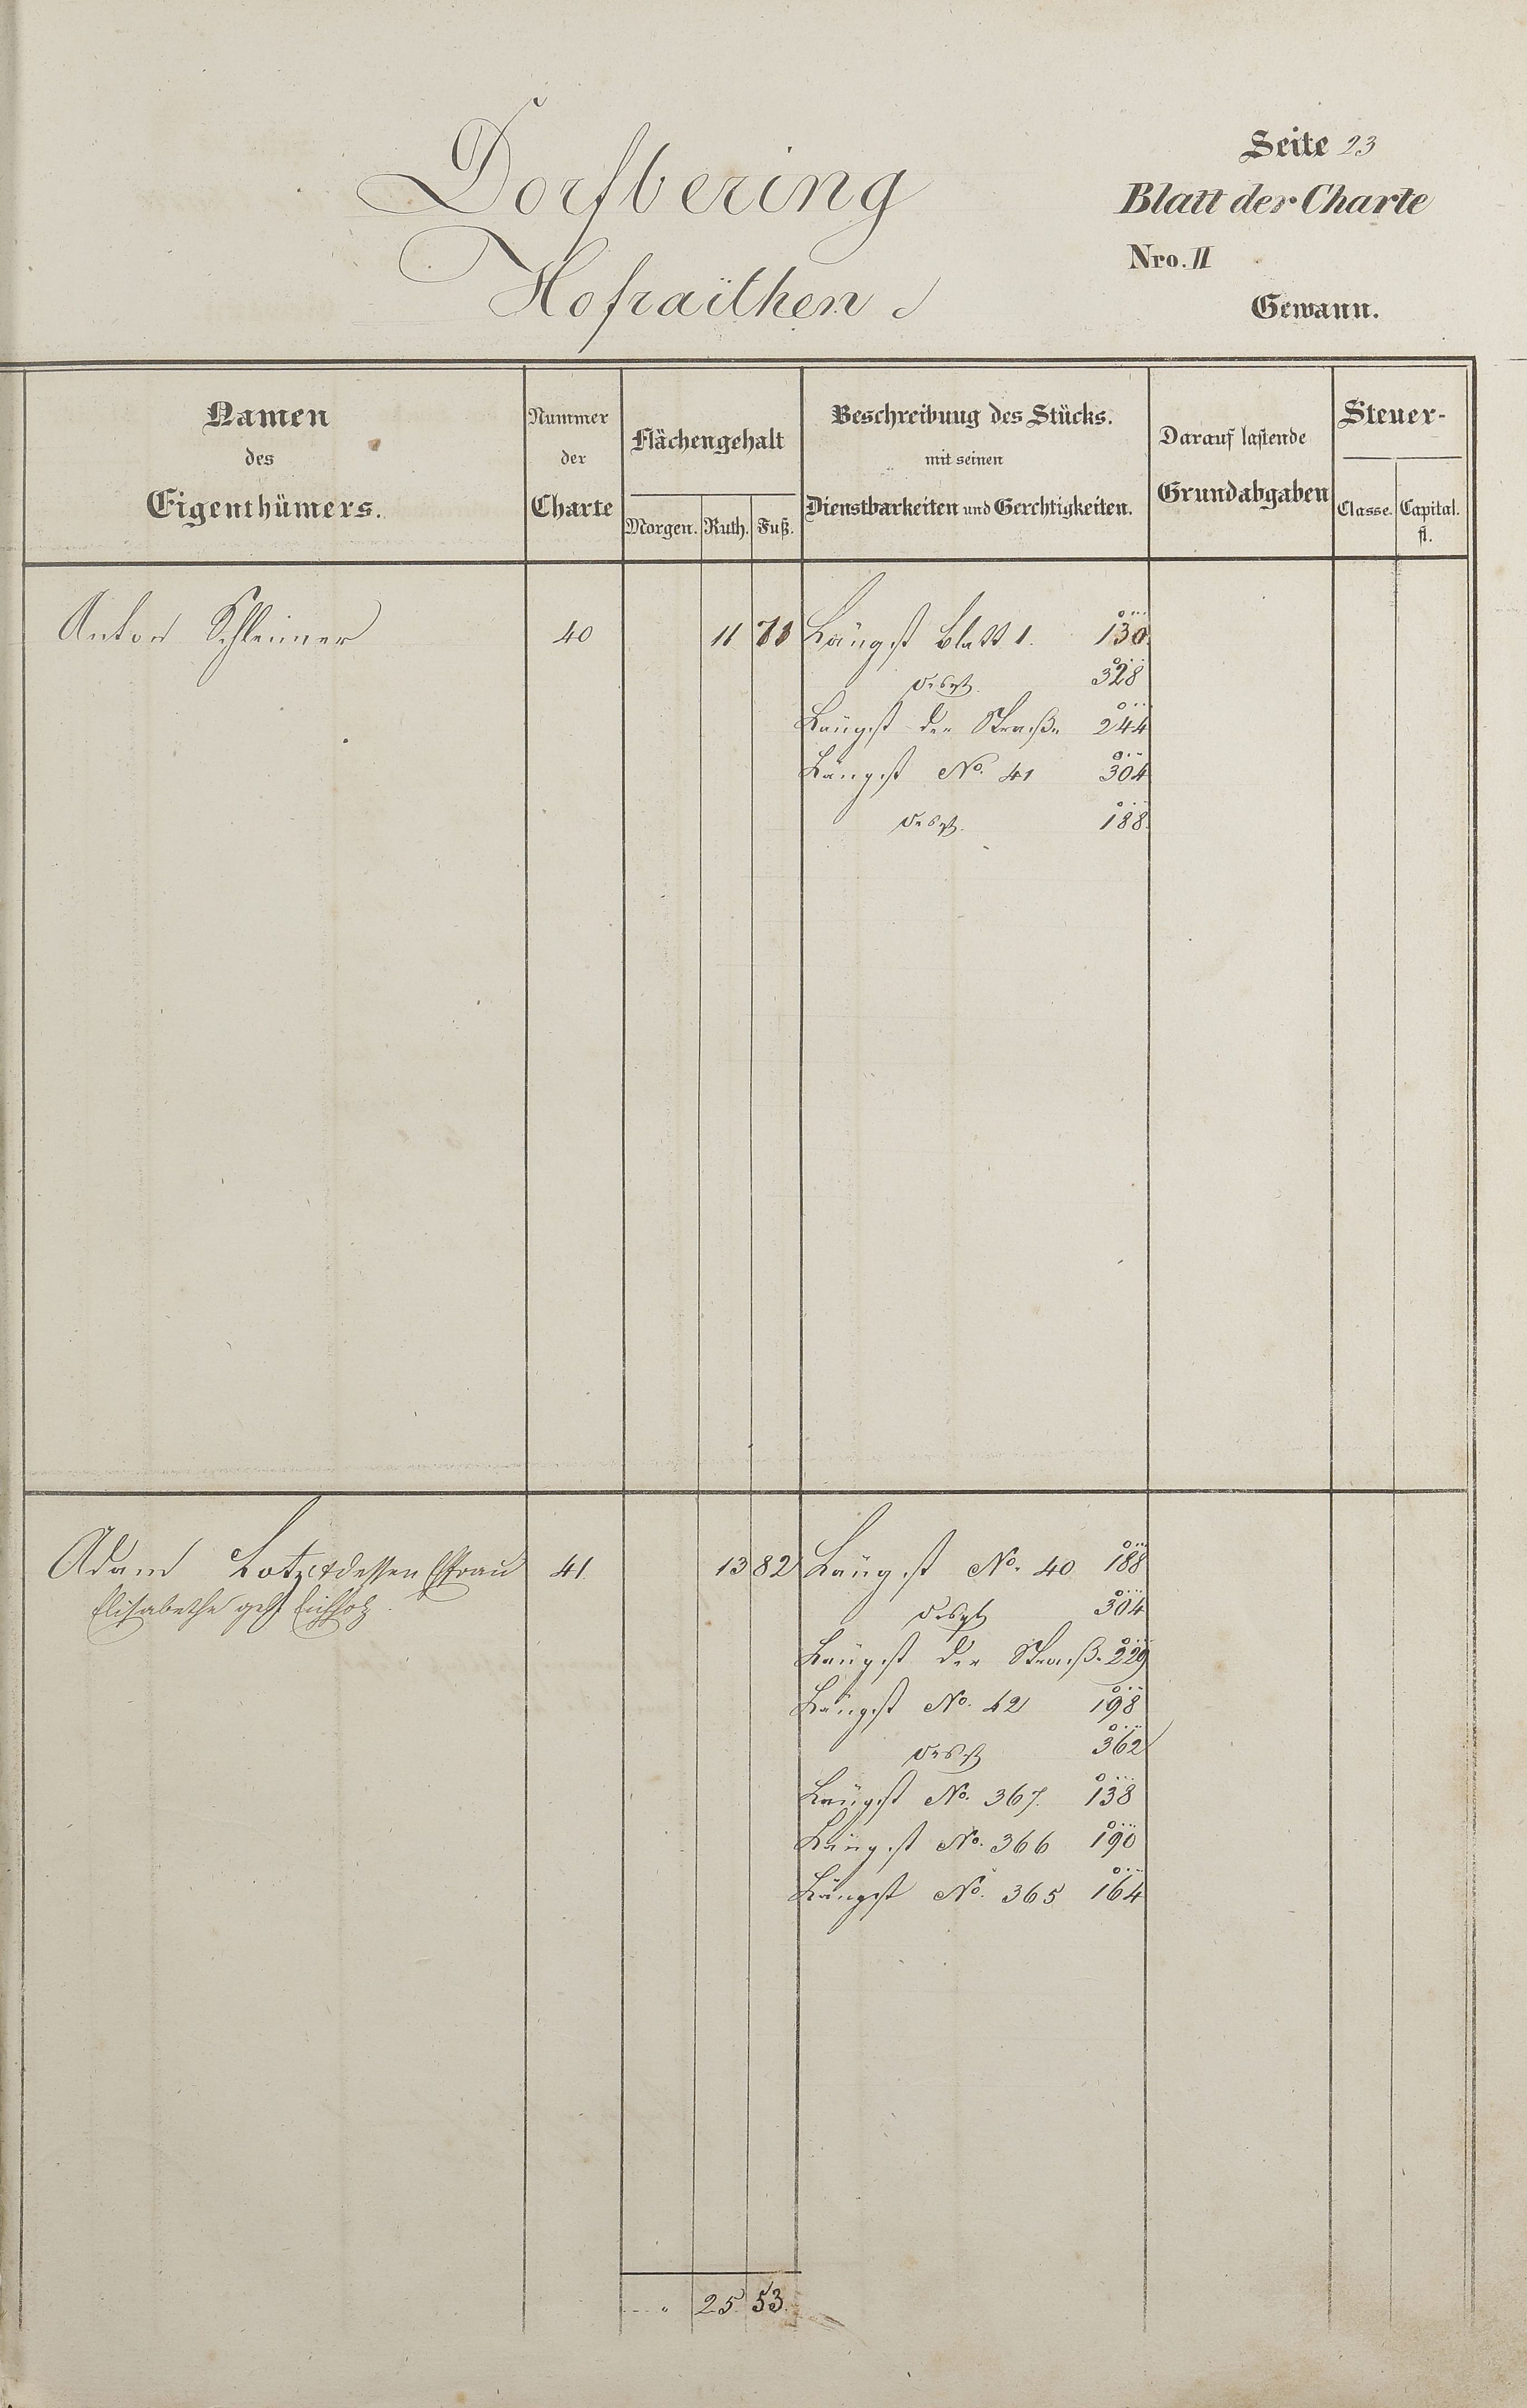 Dorfbering
Hofraithen
Seite 23
Blatt der Charte
Nro. II
Gewann.
Namen des Eigenthümers.
Nummer der Charte
Flächengehalt
Morgen. Ruth. Fuß.
Beschreibung des Stücks.
mit seinen
Dienstbarkeiten und Gerechtigkeiten.
Darauf lastende
Grundabgaben
Steuer-
Classe. Capital.
fl.
Anton Schleimer 40 11 Längst Blatt 1. 130.
328
Längst der Straße 244
Längst No. 41 304
188.
Adam Lotz & dessen Efrau 41 13 82 Längst No. 40 188
Elisabethe geb. Eichholz 304
Längst der Straße 229
Längst No. 42 198
362
Längst No. 367. 138
Längst No. 366 190
Längst No. 365 164
" 25 53.